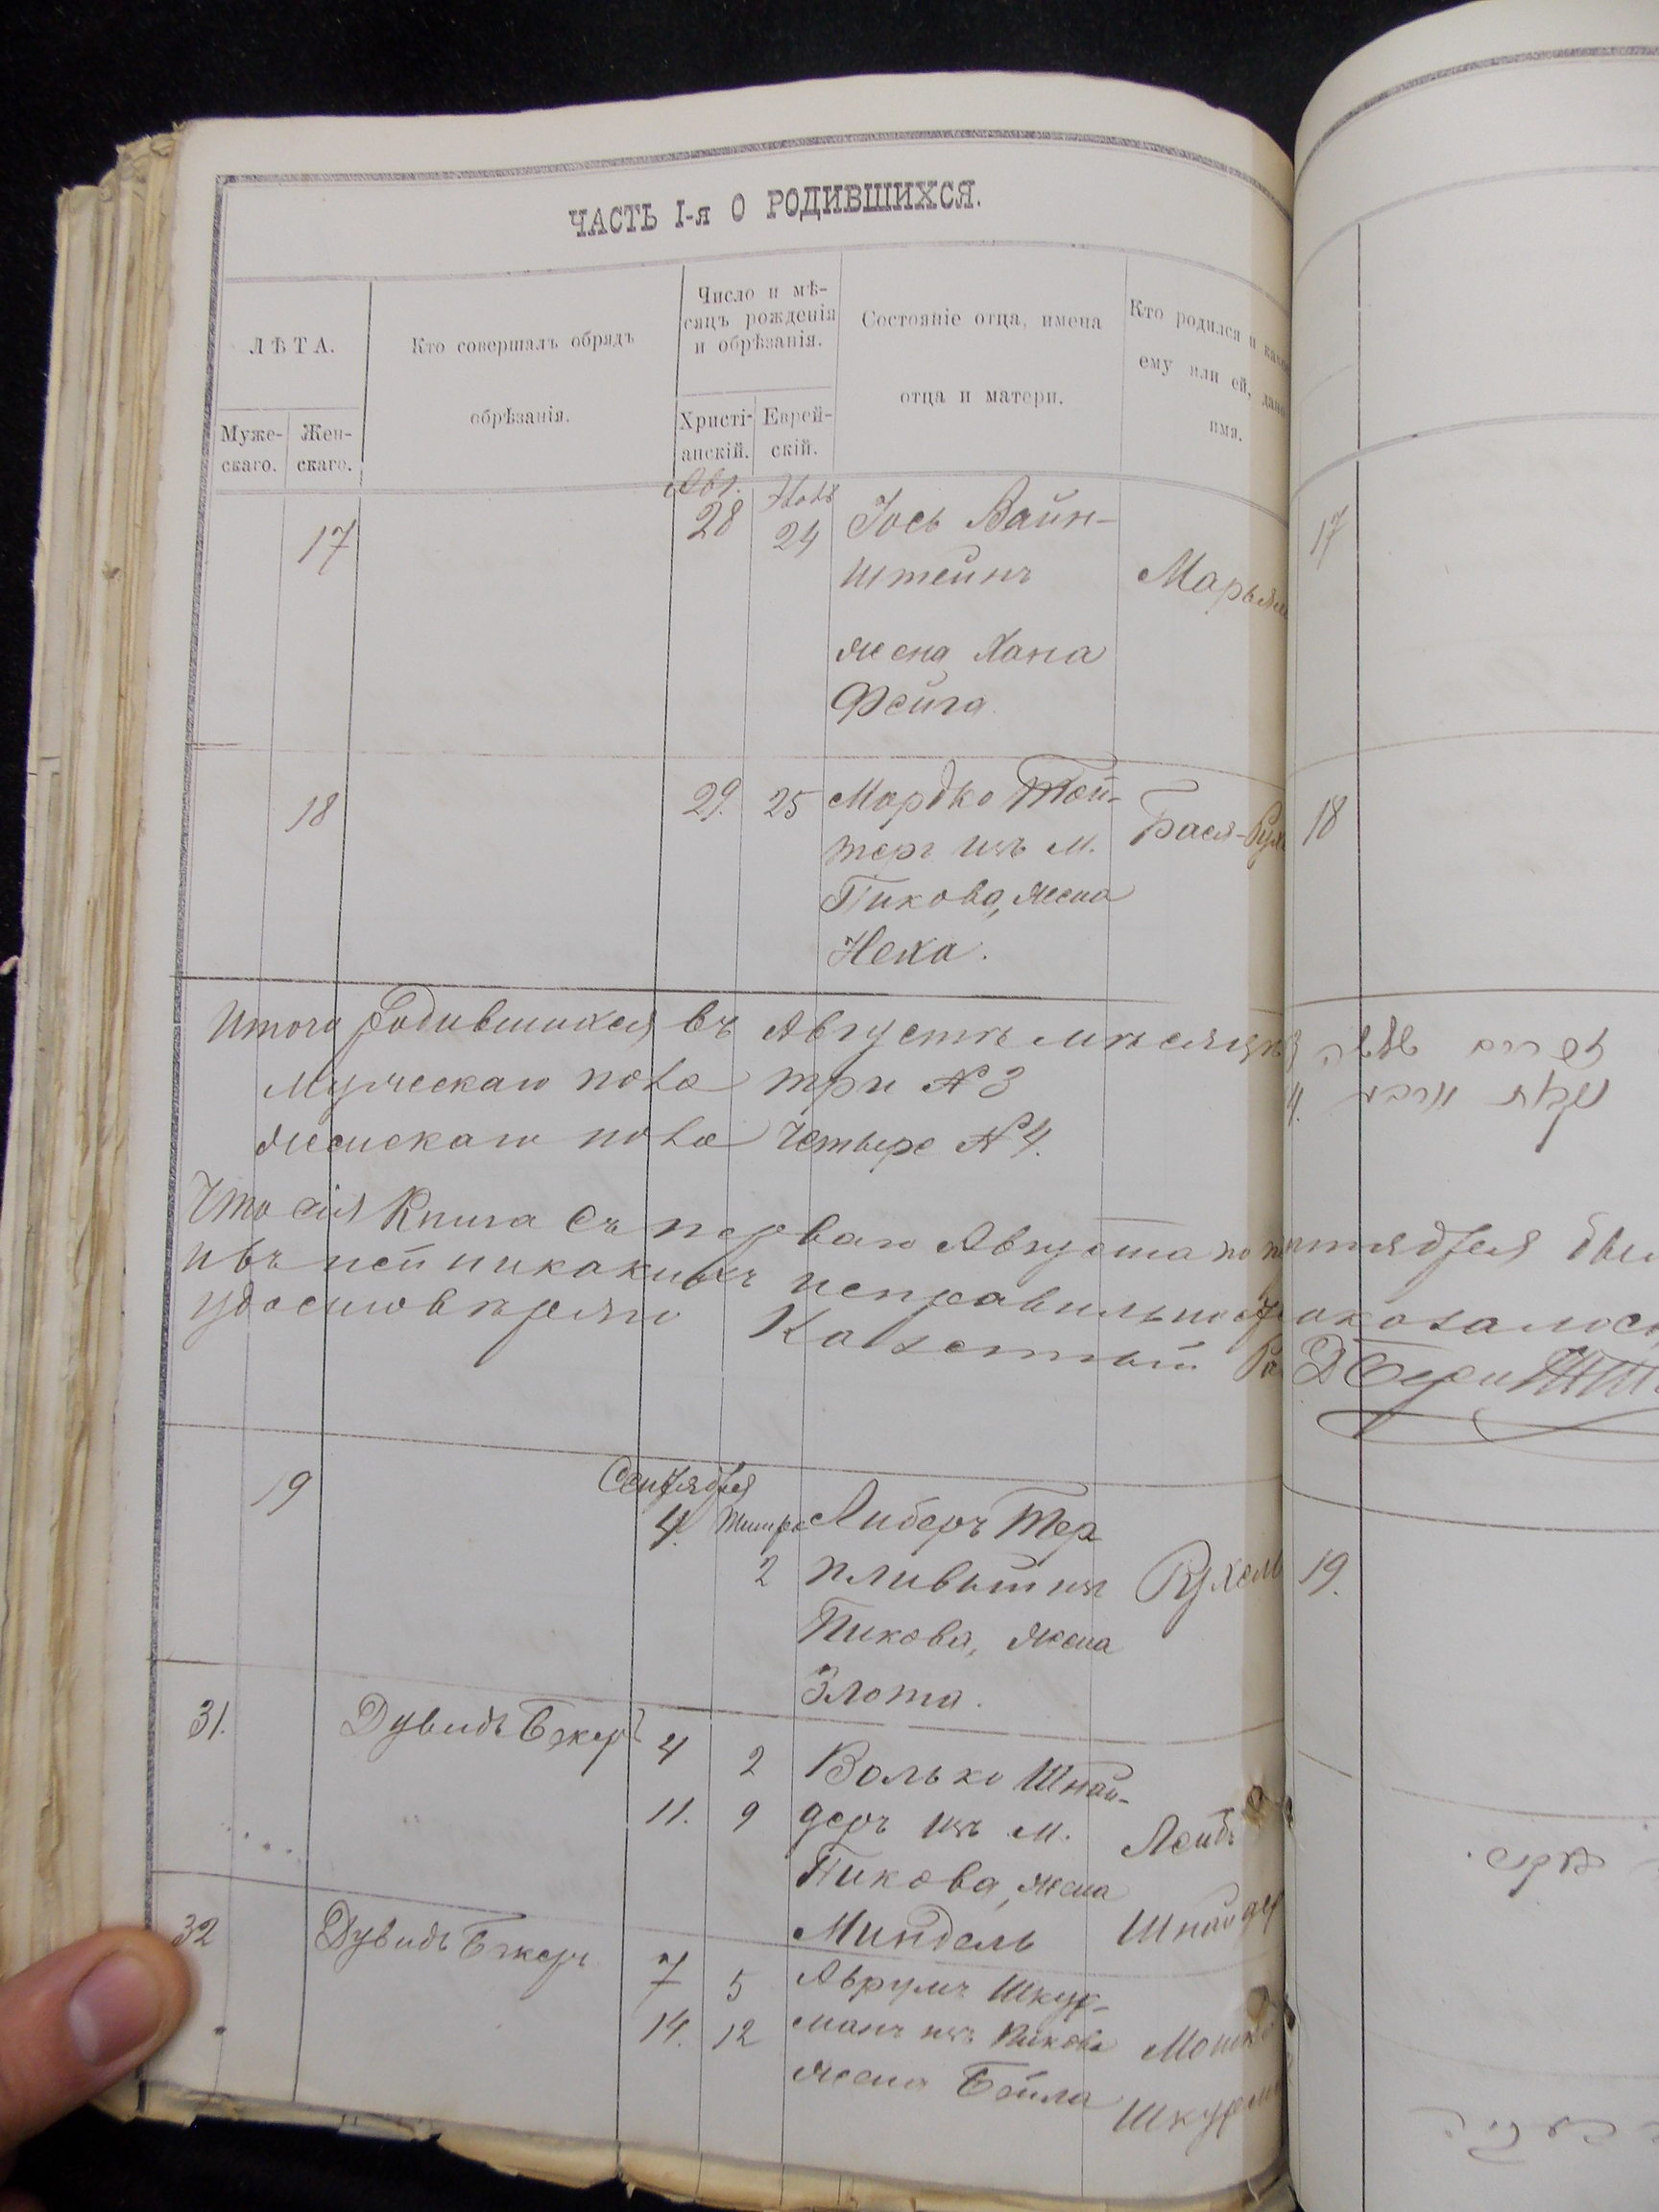 ЧАСТЬ I-я О РОДИВШИХСЯ.
ЛѢТА.
Муже-
скаго.
Жен-
скаго.
Кто совершалъ обрядъ
обрѣзанія.
Число и мѣ-
сяцъ рожденія
и обрѣзанія.
Христі-
анскій.
Еврей-
скій.
Состояніе отца, имена
отца и матери.
Кто родился и
ему или ей,
имя.
17
Авг.
28
24
Іось Вайн-
штейнъ
жена Хана
Фейга
Марьям
17
18
29.
25
Мордко
изъ М.
Пикова, жена
Неха.
Бася-
18
Итого родившихся въ Августѣ мѣсяцѣ
мужескаго пола три № 3
женскаго пола четыре № 4.
Что сія Книга съ перваго Августа по
и въ ней никакихъ неправильностей оказалось
удостовѣряю Казенный
19
Сентября
4.
Тишре
2
Либеръ Тер
пливый изъ
Пикова, жена
Злота.
Рухель
19.
31.
Дувидъ Бекеръ
4
2
11.
9
Волько Шнай-
деръ изъ М.
Пикова, жена
Миндель
Лейбъ
Шнайдер
32
Дувидъ Бекеръ
7
5
14.
12
Аврумъ Шкур-
манъ изъ Пикова
жена Бейла
Мошко
Шкурм